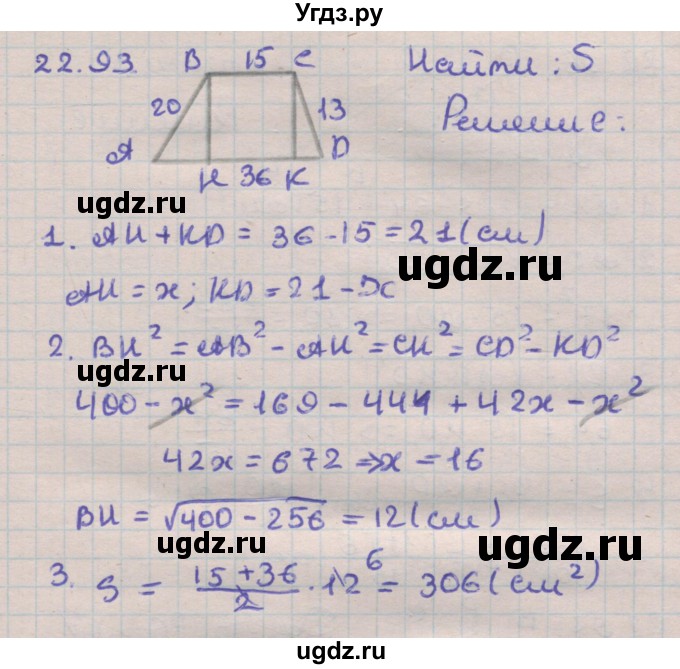 Угдз.ру
22.93. B 15 C Найти: S
20 13 Решение:
A H 36 K D
1. AH + KD = 36 - 15 = 21 (см)
ugdz.ru ugdz.ru
AH = x; KD = 21 - x
2. BH² = AB² - AH² = CK² = CD² - KD²
400 - x² = 169 - 441 + 42x - x²
42x = 672 ⇒ x = 16
BH = √400 - 256 = 12 (см)
ugdz.ru ugdz.ru
3. S = 15 + 36 / 2 · 12 6 = 306 (см²)
ugdz.ru